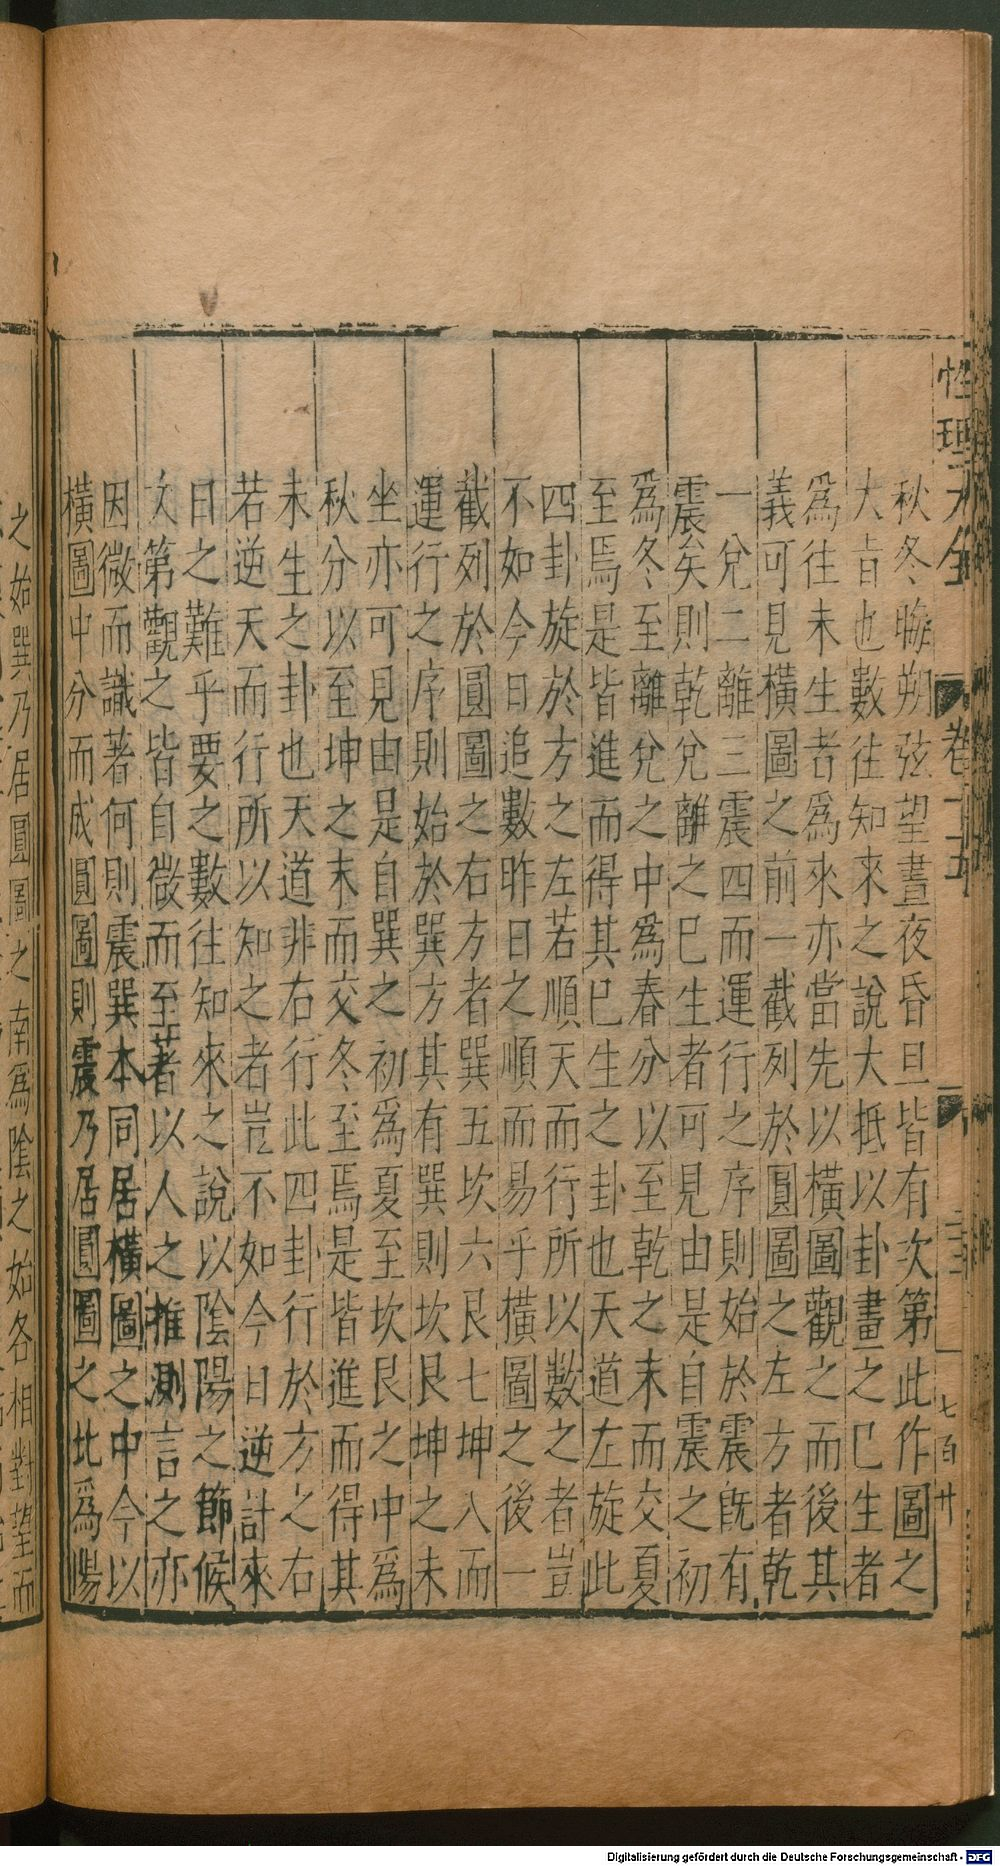 性理大全 卷十五 二三 七百廿
秋冬晦朔弦望晝夜昏旦皆有次第此作圖之
大旨也數往知來之說大抵以卦畫之已生者
爲往未生者爲來亦當先以橫圖觀之而後其
義可見橫圖之前一截列於圓圖之左方者乾
一兌二離三震四而運行之序則始於震旣有
震矣則乾兌離之已生者可見由是自震之初
爲冬至離兌之中爲春分以至乾之末而交夏
至焉是皆進而得其已生之卦也天道左旋此
四卦旋於方之左若順天而行所以數之者豈
不如今日追數昨日之順而易乎橫圖之後一
截列於圓圖之右方者巽五坎六艮七坤八而
運行之序則始於巽方其有巽則坎艮坤之未
坐亦可見由是自巽之初爲夏至坎艮之中爲
秋分以至坤之末而交冬至焉是皆進而得其
未生之卦也天道非右行此四卦行於方之右
若逆天而行所以知之者豈不如今日逆計來
日之難乎要之數往知來之說以陰陽之節候
次第觀之皆自微而至著以人之推測言之亦
因微而識著何則震巽本同居橫圖之中今以
橫圖中分而成圓圖則震乃居圓圖之北爲陽
之始巽乃居圓圖之南爲陰之始各相對望而
Digitalisierung gefördert durch die Deutsche Forschungsgemeinschaft - DFG